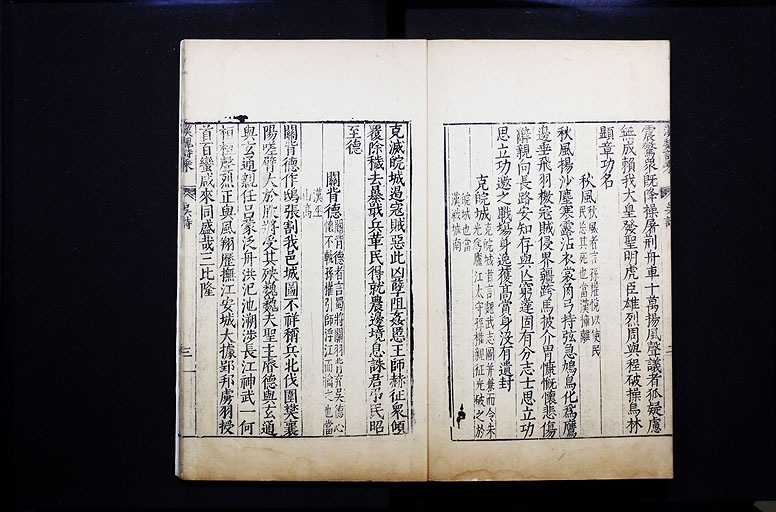 震驚衆既降操屠荆舟車十萬揚風聲議者狐疑慮
無成賴我大皇發聖明虎臣雄烈周與程破操烏林
顯章功名
秋風秋風者言孫權悅以使民
民忘其死也當漢擁離
秋風揚沙塵寒露沾衣裳角弓持弦急鳩鳥化爲鷹
邊垂飛羽檄寇賊侵界疆跨馬披介冑慷慨懷悲傷
辭親向長路安知存與亡窮達固有分志士思立功
思立功邀之戰場身逸獲高賞身没有遺封
克皖城克皖城者言魏武志圖并兼而令朱
光爲廬江太守孫權親征光破之於
皖城也當
漢戰城南
克滅皖城遏寇賊惡此凶孽阻姦慝王師赫征衆傾
覆除穢去暴戢兵革民得就農邊境息誅君弔民昭
至德
關背德關背德者言蜀將關羽背弃吳德心
懷不軌孫權引師浮江而擒之也當
漢巫
山高
關背德作鴟張割我邑城圖不祥稱兵北伐圍樊襄
陽嗟臂大於股將受其殃巍巍夫聖主睿德與玄通
與玄通親任吕蒙泛舟洪氾池溯涉長江神武一何
桓桓聲烈正與風翔歷撫江安城大據郢邦虜羽授
首百蠻咸來同盛哉三比隆
吳詩
三